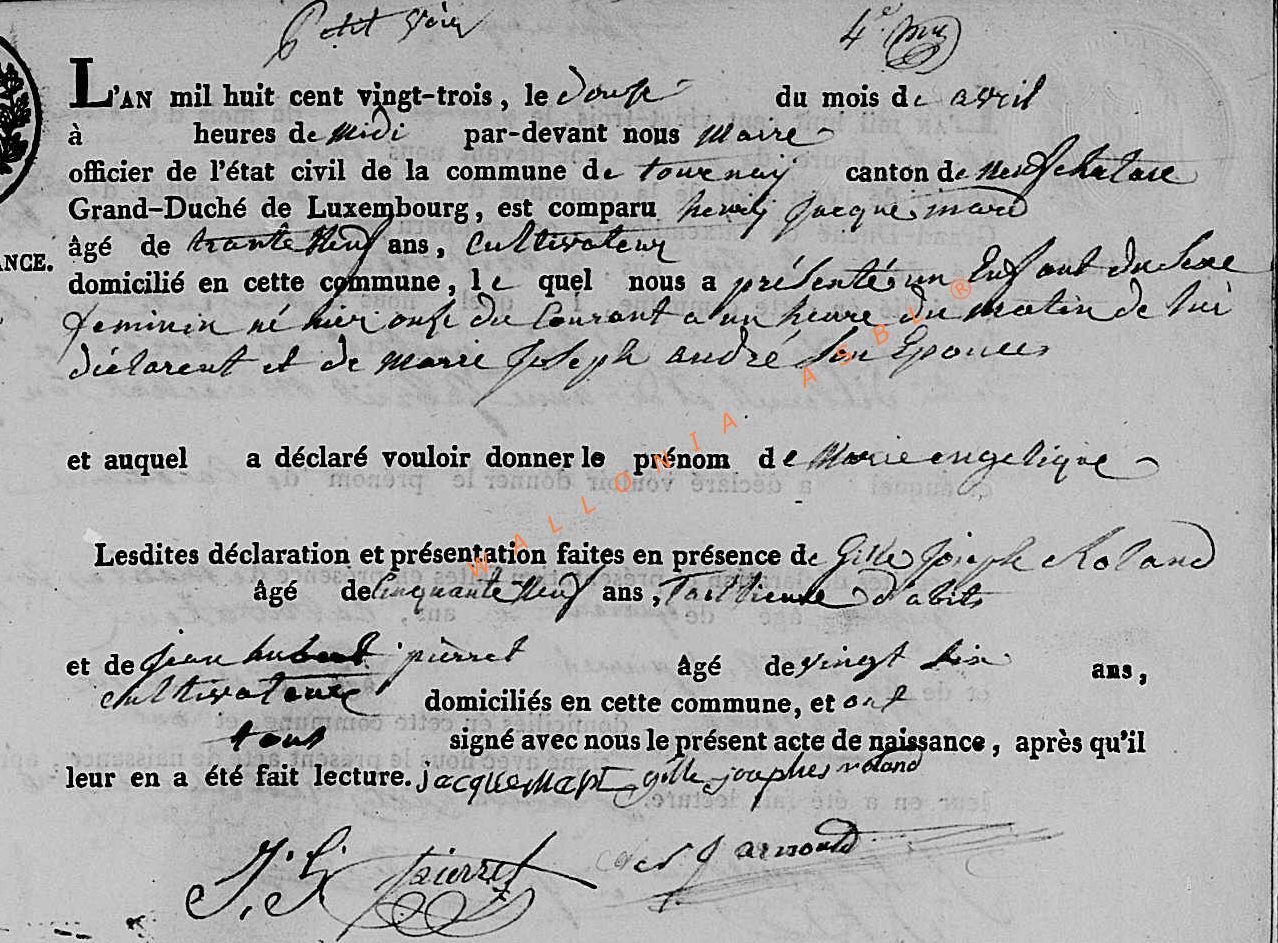 Petit
4e
L'AN mil huit cent vingt-trois, le douse du mois de avril
à heures de Midi par-devant nous Maire
officier de l'état civil de la commune de tournay canton de Neufchatau
Grand-Duché de Luxembourg, est comparu henrij Jacquemard
ANCE.
âgé de trante Neuf ans, Cultivateur
domicilié en cette commune, le quel nous a présenté un Enfant du Sexe
feminin né hier onse du Courant a un heure du matin de lui
déclarent et de Marie Joseph andré Son Epouce
et auquel a déclaré vouloir donner le prénom de Marie engelique
Lesdites déclaration et présentation faites en présence de Gille Joseph Roland
âgé de Cinquante Neuf ans, Taillieure d'abits
et de jean hubert pierret âgé de vingt Six ans,
Cultivateure domiciliés en cette commune, et ont
tous signé avec nous le présent acte de naissance, après qu'il
leur en a été fait lecture. jacquemart gille josephes roland
J. h. pierret J arnould
WALLONIA ASBL ®